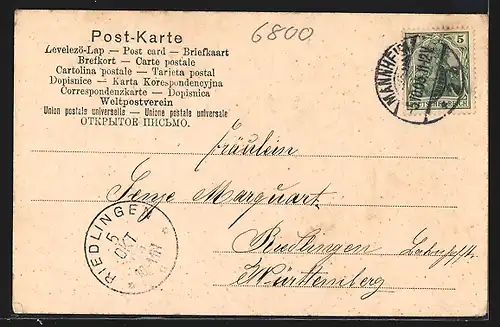 Post-Karte
6800
Levelező-Lap — Post card — Briefkaart
Brefkort — Carte postale
Cartolina postale — Tarjeta postal
Dopisnice — Karta Korespondencyjna
Correspondenzkarte — Dopisnica
Weltpostverein
Union postale universelle — Unione postale universale
ОТКРЫТОЕ ПИСЬМО.
MANNHEIM
5
DEUTSCHES REICH
Fräulein
Marquart
RIEDLINGEN
5
OKT
Riedlingen
Württemberg